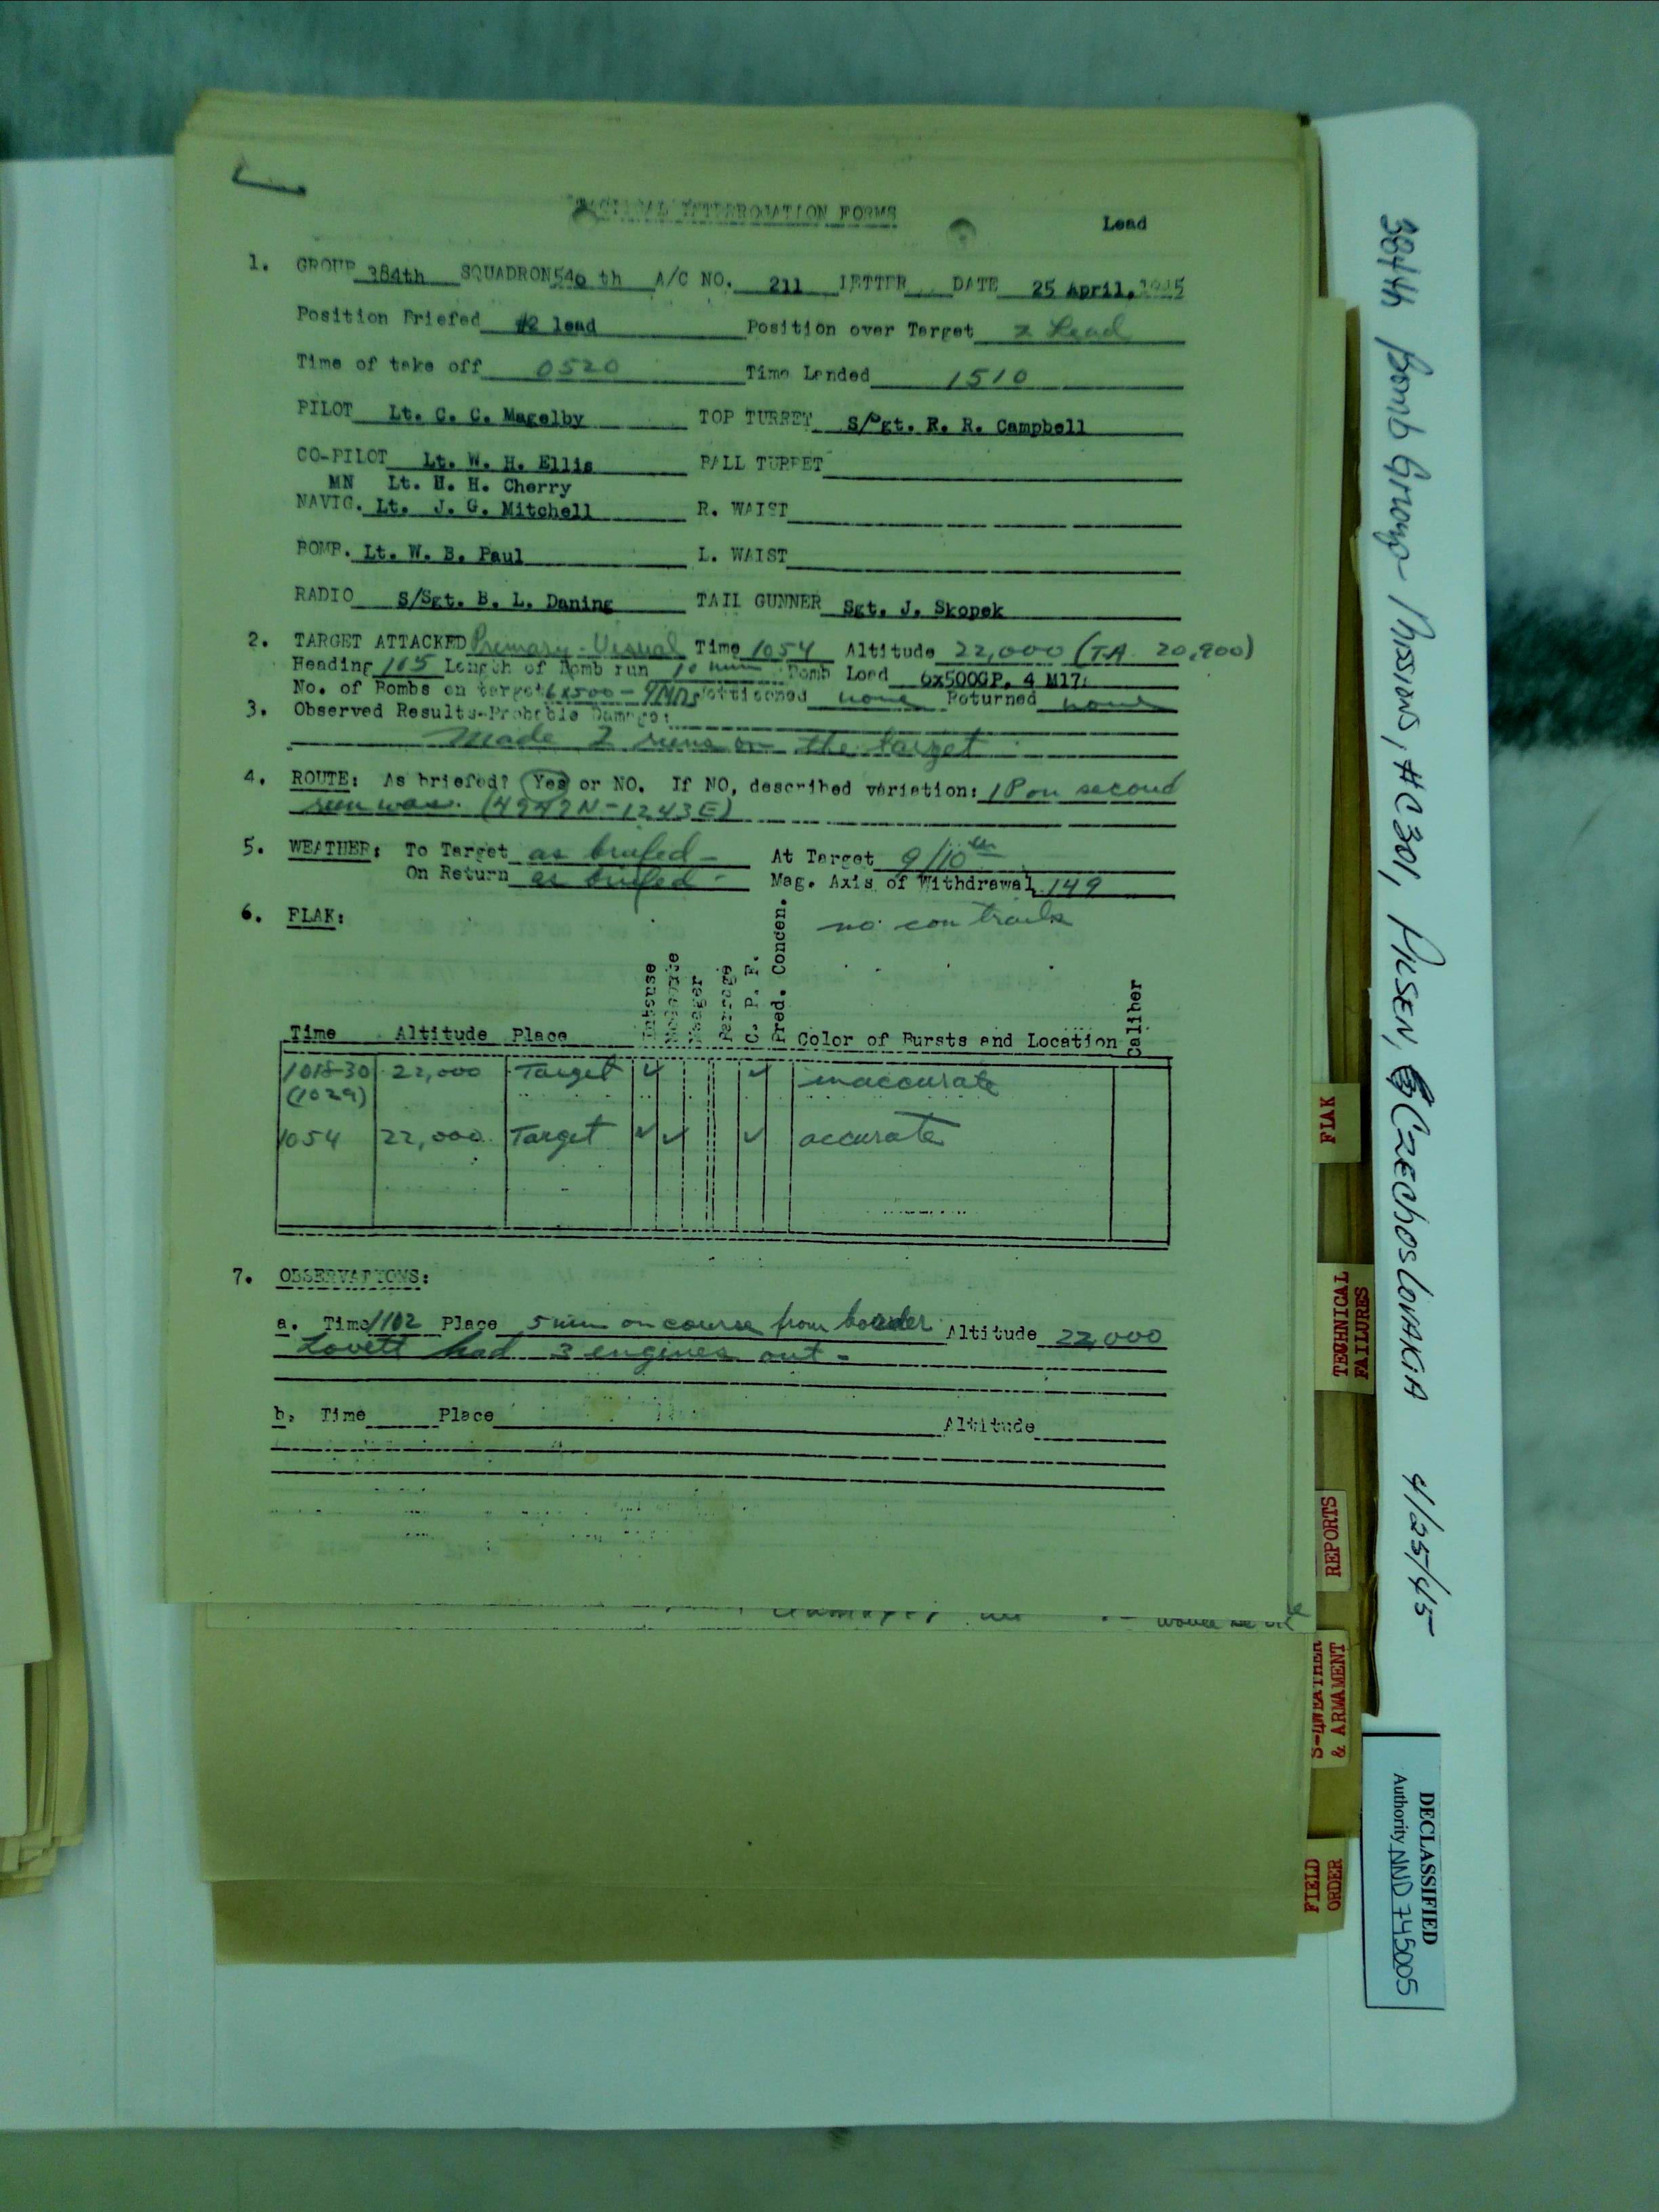 INTERROGATION FORMS
Lead
1. GROUP 384th SQUADRON 540 th A/C NO. 211 LETTER DATE 25 April, 1945
Position Briefed #2 lead Position over Target 2 Lead
Time of take off 0520 Time Landed 1510
PILOT Lt. C. C. Magelby TOP TURRET S/Sgt. R. R. Campbell
CO-PILOT Lt. W. H. Ellis BALL TURRET
MN Lt. H. H. Cherry
NAVIG. Lt. J. G. Mitchell R. WAIST
BOMB. Lt. W. B. Paul L. WAIST
RADIO S/Sgt. B. L. Daning TAIL GUNNER Sgt. J. Skopek
2. TARGET ATTACKED Primary - Visual Time 1054 Altitude 22,000 (TA 20,900)
Heading 105 Length of Bomb run 10 min Bomb Load 6x500GP, 4 M17
No. of Bombs on target 6x500 - Jettisoned none Returned none
3. Observed Results-Probable Damage:
Made 2 runs on the target
4. ROUTE: As briefed? Yes or NO. If NO, described variation: IP on second
run was. (4942N-1243E)
5. WEATHER: To Target as briefed - At Target 9/10
On Return as briefed - Mag. Axis of Withdrawal 149
6. FLAK: no con trails
Time Altitude Place Intense Moderate Meager Barrage C. P. F. Pred. Concen. Color of Bursts and Location Caliber
1018-30 22,000 Target ✓ ✓ inaccurate
(1029)
1054 22,000 Target ✓ ✓ ✓ accurate
7. OBSERVATIONS:
a. Time 1102 Place 5 min on course from boarder Altitude 22,000
Lovett had 3 engines out -
b. Time Place Altitude
would be
384th Bomb Group Missions, #C301, PilSEN, CZEChoSlovAKiA 4/25/45
FLAK
TECHNICAL
FAILURES
REPORTS
S-2 WEATHER
& ARMAMENT
FIELD
ORDER
DECLASSIFIED
Authority NND 745005